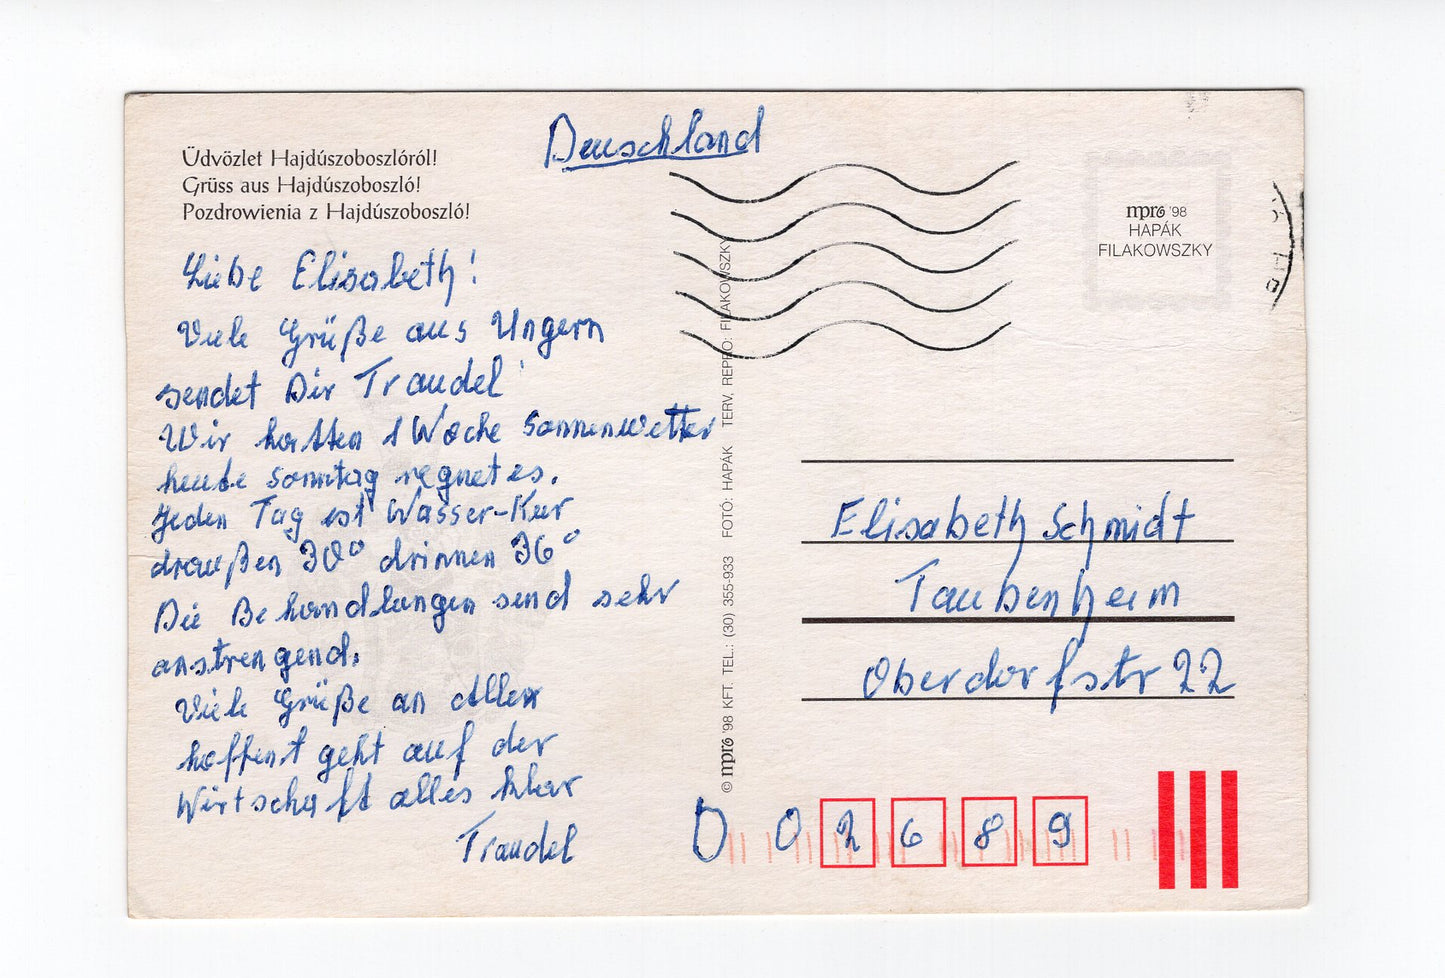 Üdvözlet Hajdúszoboszlóról!
Grüss aus Hajdúszoboszló!
Pozdrowienia z Hajdúszoboszló!
Deuschland
Liebe Elisabeth!
Viele Grüße aus Ungern
sendet Dir Traudel
Wir hatten 1 Woche Sonnenwetter
heute Sonntag regnet es.
Jeden Tag ist Wasser-Kur
draußen 30° drinnen 36°
Die Behandlungen send sehr
anstrengend.
Viele Grüße an Allen
hoffent geht auf der
Wirtschaft alles klar
Traudel
© mpro '98 KFT. TEL.: (30) 355-933 FOTÓ: HAPÁK TERV, REPRO: FILAKOWSZKY
mpro '98
HAPÁK
FILAKOWSZKY
Elisabeth Schmidt
Taubenheim
Oberdorfstr 22
D 02689